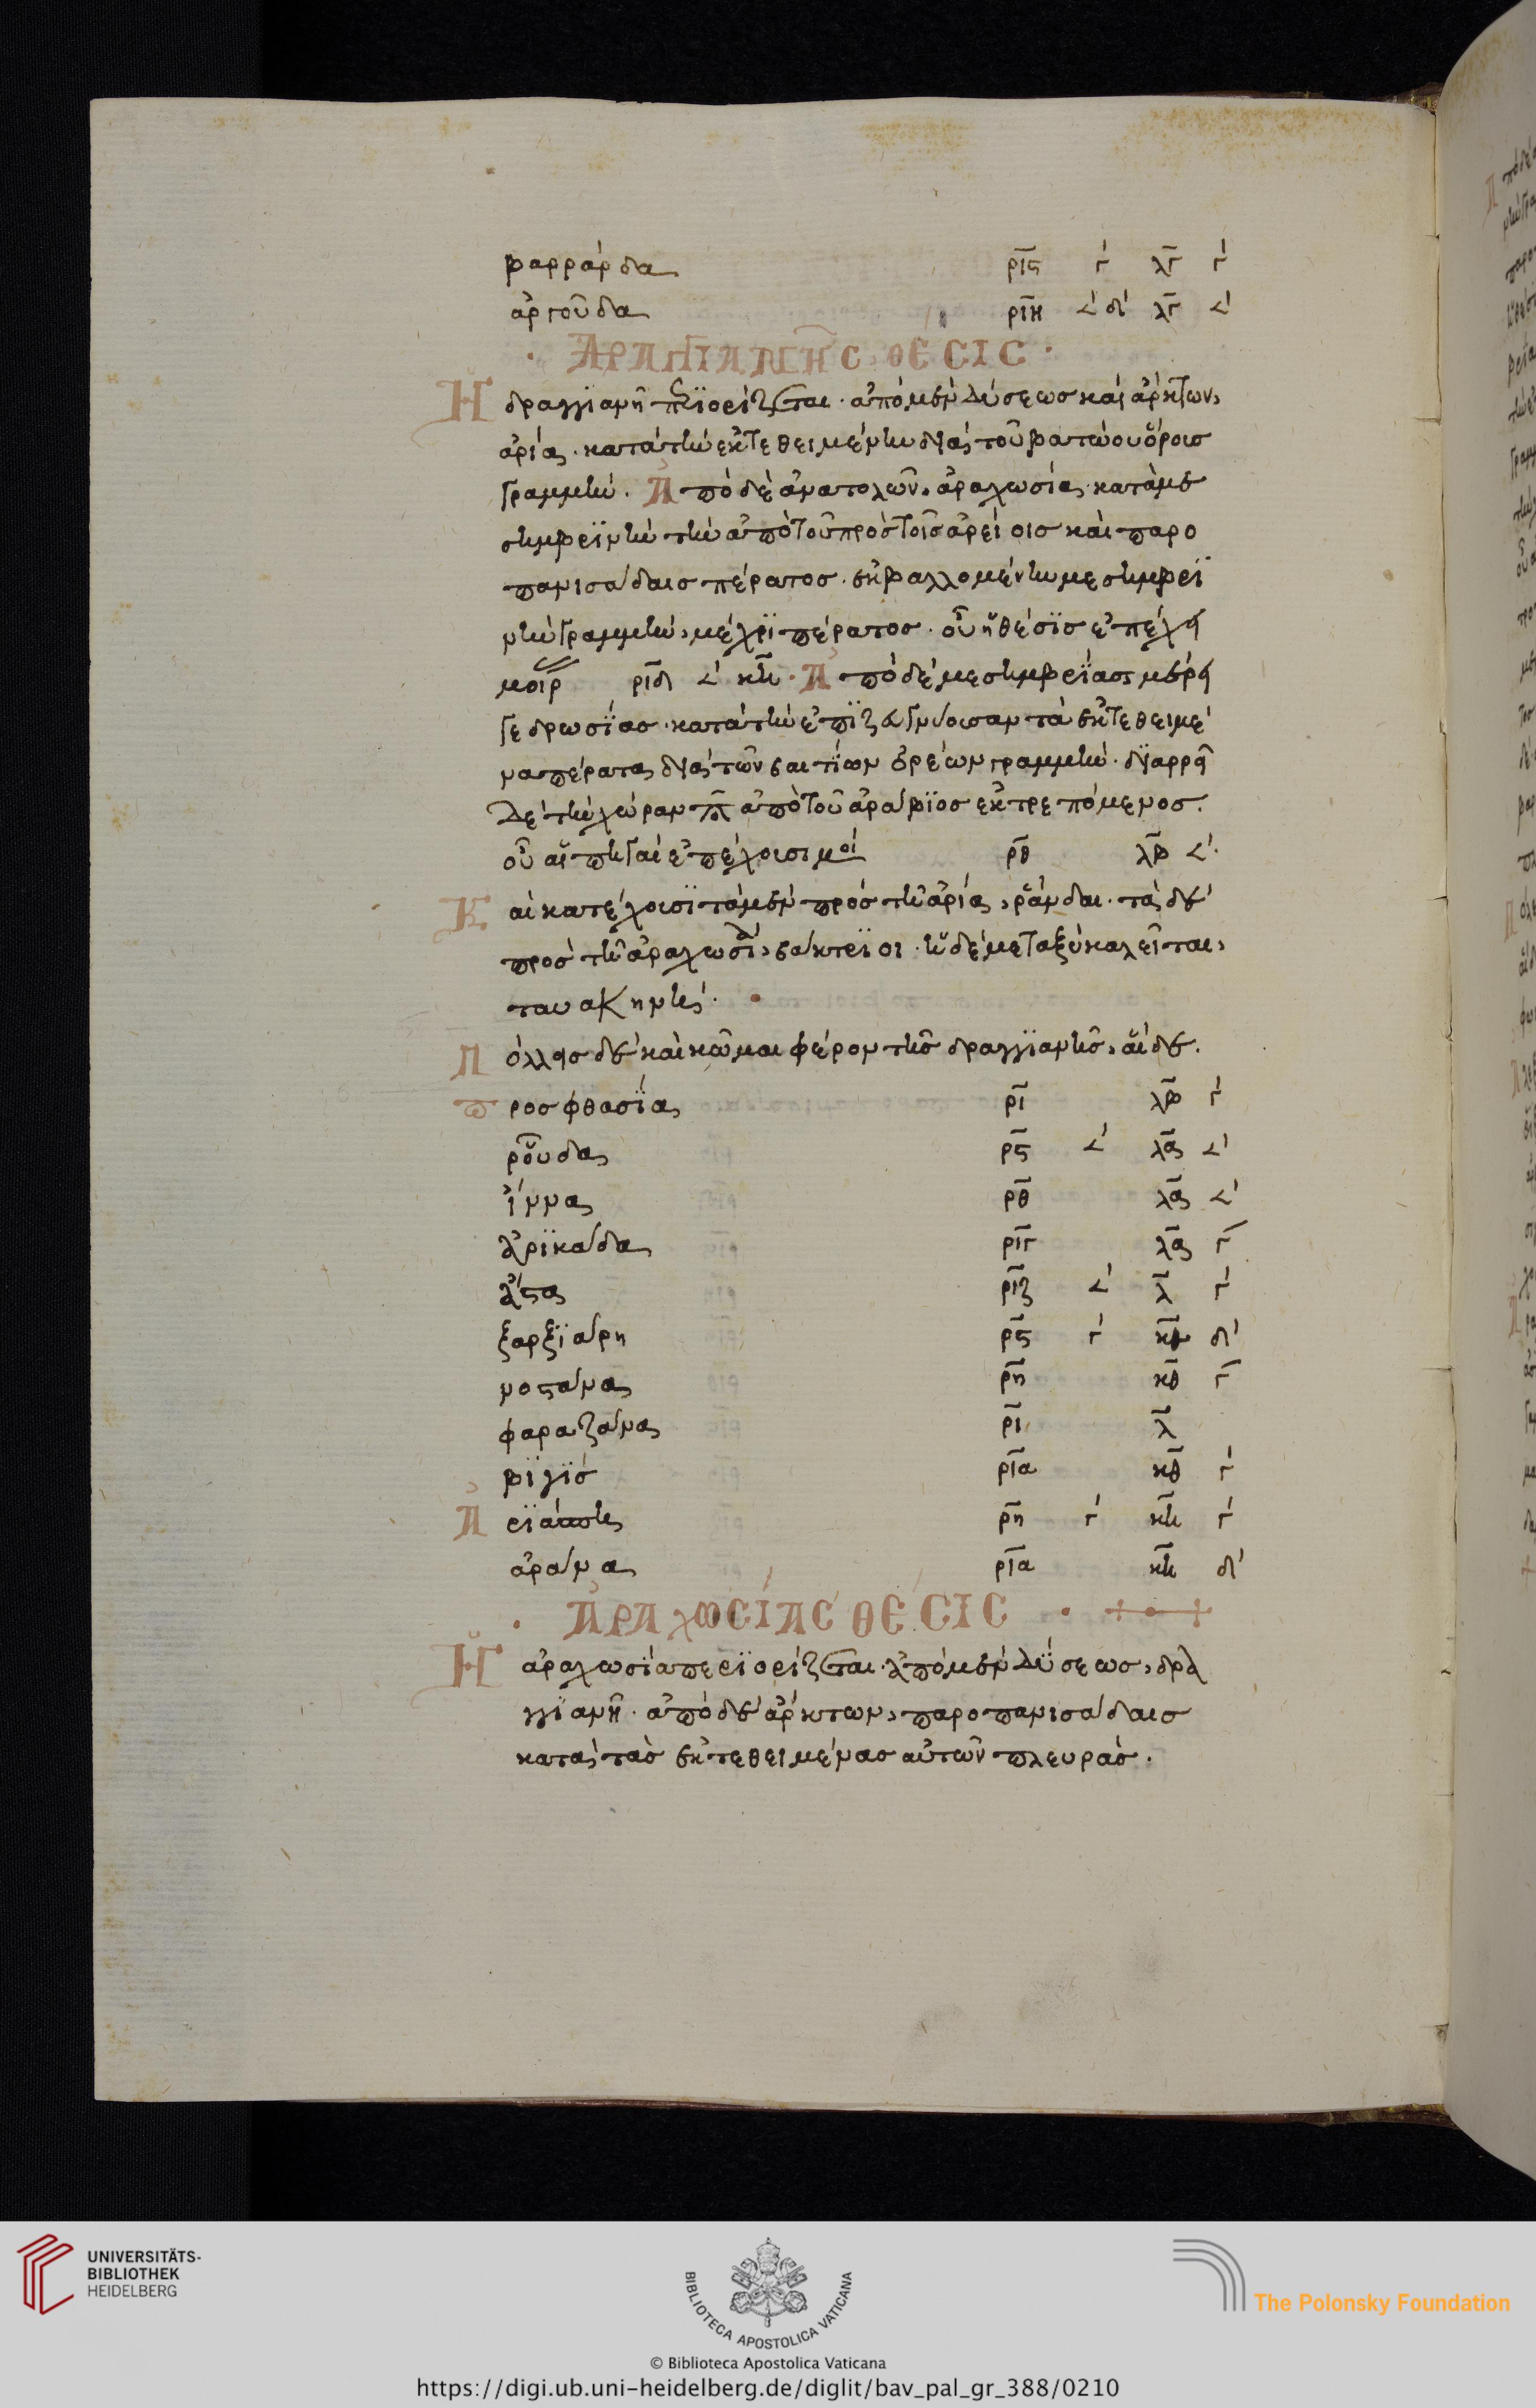 βαρβάρδα ριϛ γ' λγ γ'
ἀργοῦδα ριη 𐅵' δ' λγ 𐅵'
ΔΡΑΓΓΙΑΝΗ͂Σ ΘΕΣΙΣ
Ἡ δραγγϊανὴ πεϊορίζεται· ἀπὸ μὲν δύσεως καὶ ἄρκτων,
ἀρία· κατὰ τὴν ἐκτεθειμένην διὰ τοῦ βαγώου ὄρους
γραμμήν. Ἀπὸ δὲ ἀνατολῶν, ἀραχωσία· κατὰ με
σημβρϊνὴν τὴν ἀπὸ τοῦ πρὸς τοῖς ἀρείοις καὶ παρο
πανισάδαις πέρατος· ἐκβαλλομένην μεσημβρϊ
νὴν γραμμὴν, μέχρϊ πέρατος· οὗ ἡ θέσϊς ἐπέχει
μοιρ ριδ 𐅵' κη· Ἀπὸ δὲ μεσημβρίας μέρει
γεδρωσΐας· κατὰ τὴν ἐπϊζευγνύουσαν τὰ ἐκτεθειμέ
να πέρατα διὰ τῶν βαιτίων ὀρέων γραμμήν· διαρρεῖ
δὲ τὴν χώραν π ἀπὸ τοῦ ἀράβϊος ἐκτρεπόμενος.
οὗ αἱ πηγαὶ ἐπέχουσι μοι ρθ λβ 𐅵'.
Καὶ κατέχουσϊ τὰ μὲν πρὸς τῇ ἀρία, ῥάνδαι· τὰ δὲ
πρὸς τῇ ἀραχωσία, βάκτρϊοι· ἡ δὲ μεταξὺ καλεῖται,
τατακηνή.
Πόλεις δὲ καὶ κῶμαι φέρον τῆς δραγγϊανῆς, αἵδε.
προσφθασΐα ρι λβ γ'
ῥοῦδα ρϛ 𐅵' λα 𐅵'
ἴννα ρθ λα 𐅵'
ἀρϊκάδα ριγ λα γ
ἄστα ριζ 𐅵' λ γ'
ξαρξϊάρη ρϛ γ' κθ δ'
νοστάνα ρη κθ γ
φαραζάνα ρι λ
βϊγϊς ρια κθ γ'
Ἀρϊάσπη ρη γ' κη γ'
ἀράνα ρια κη δ'
ἈΡΑΧΩΣΊΑΣ ΘΕΣΙΣ
Ἡ ἀραχωσία περϊορίζεται· ἀπὸ μὲν δύσεως, δρα
γγϊανῇ· ἀπὸ δὲ ἄρκτων, παροπανισάδαις
κατὰ τὰς ἐκτεθειμένας αὐτῶν πλευράς.
UNIVERSITÄTS-
BIBLIOTHEK
HEIDELBERG
BIBLIOTECA APOSTOLICA VATICANA
The Polonsky Foundation
© Biblioteca Apostolica Vaticana
https://digi.ub.uni-heidelberg.de/diglit/bav_pal_gr_388/0210